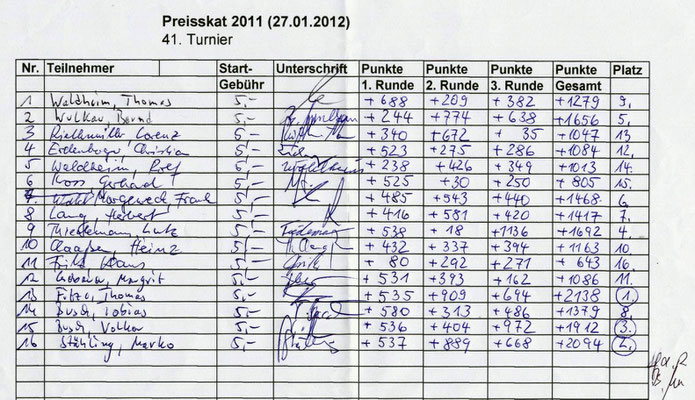 Preisskat 2011 (27.01.2012)
41. Turnier
Nr. Teilnehmer Start-Gebühr Unterschrift Punkte 1. Runde Punkte 2. Runde Punkte 3. Runde Punkte Gesamt Platz
1 Waldheim, Thomas 5,- +688 +209 +382 +1279 9.
2 Wulkau, Bernd 5,- +244 +774 +638 +1656 5.
3 Lorenz 5,- +340 +672 + 35 +1047 13.
4 Christian 5,- +523 +275 +286 +1084 12.
5 Waldheim, Rolf 5,- +238 +426 +349 +1013 14.
6 Koss, Gerhard 5,- +525 +30 +250 +805 15.
7 Frank 5,- +485 +543 +440 +1468 6.
8 Lang, Herbert 5,- +416 +581 +420 +1417 7.
9 Thiedemann, Lutz 5,- +538 +18 +1136 +1692 4.
10 Claaßen, Heinz 5,- +432 +337 +394 +1163 10.
11 Fritz, Klaus 5,- + 80 +292 +271 + 643 16.
12 Margrit 5,- +531 +393 +162 +1086 11.
13 Thomas 5,- +535 +909 +694 +2138 1.
14 Busch, Tobias 5,- +580 +313 +486 +1379 8.
15 Busch, Volker 5,- +536 +404 +972 +1912 3.
16 Stähling, Marko 5,- +537 +889 +668 +2094 2.